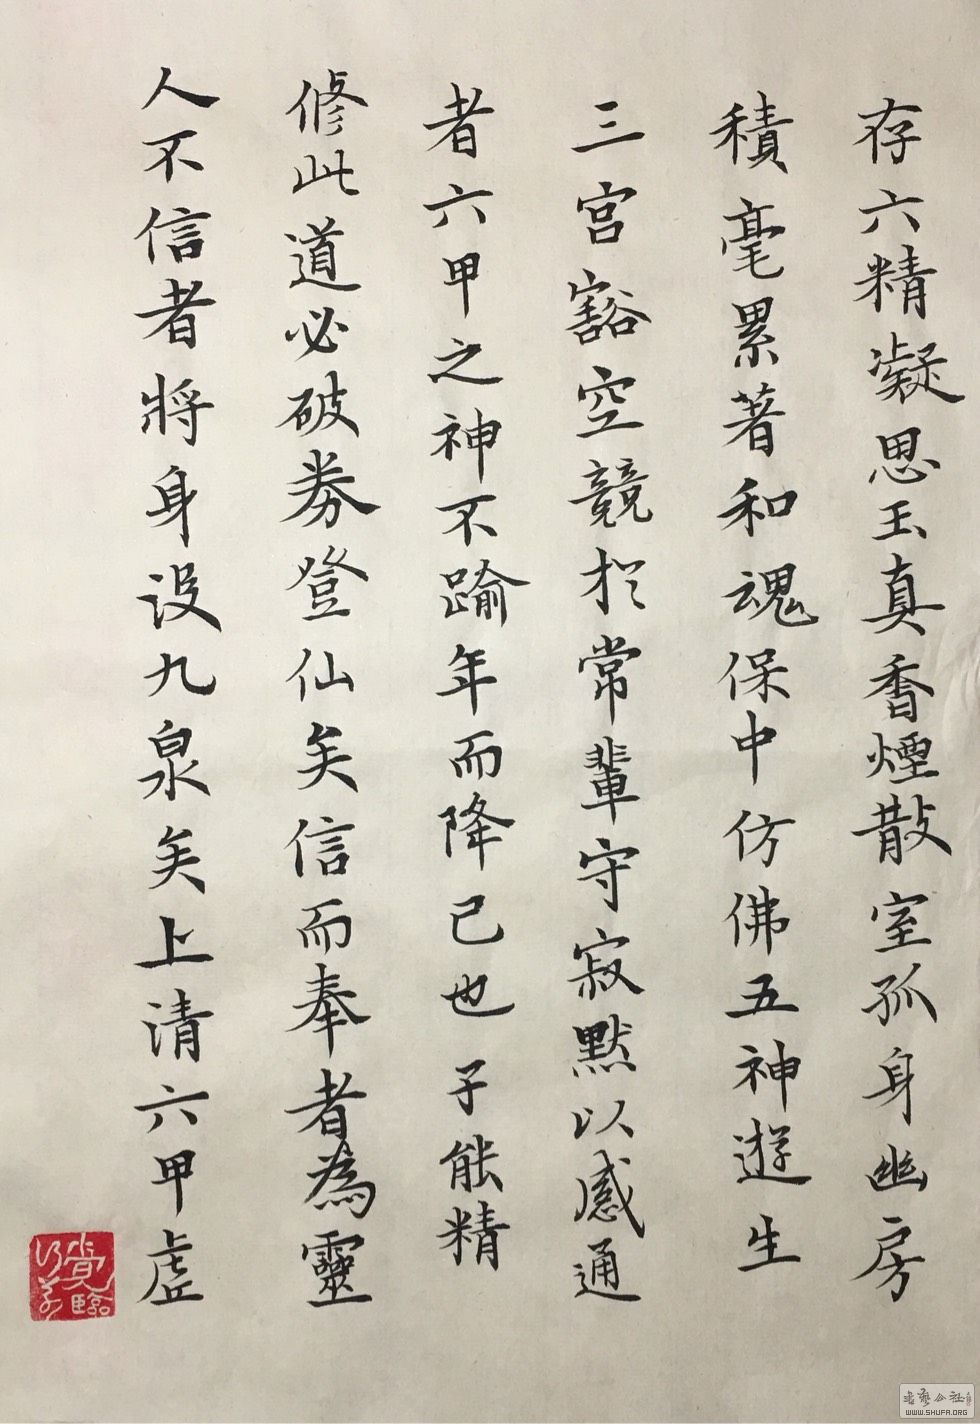 存六精凝思玉真香煙散室孤身幽房
積毫累著和魂保中仿佛五神遊生
三宮豁空競於常輩守寂默以感通
者六甲之神不踰年而降已也子能精
修此道必破券登仙矣信而奉者為靈
人不信者將身没九泉矣上清六甲虛
WWW.SHUFA.ORG